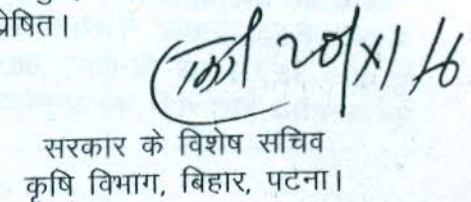 प्रेषित।
20/X/16
सरकार के विशेष सचिव
कृषि विभाग, बिहार, पटना।